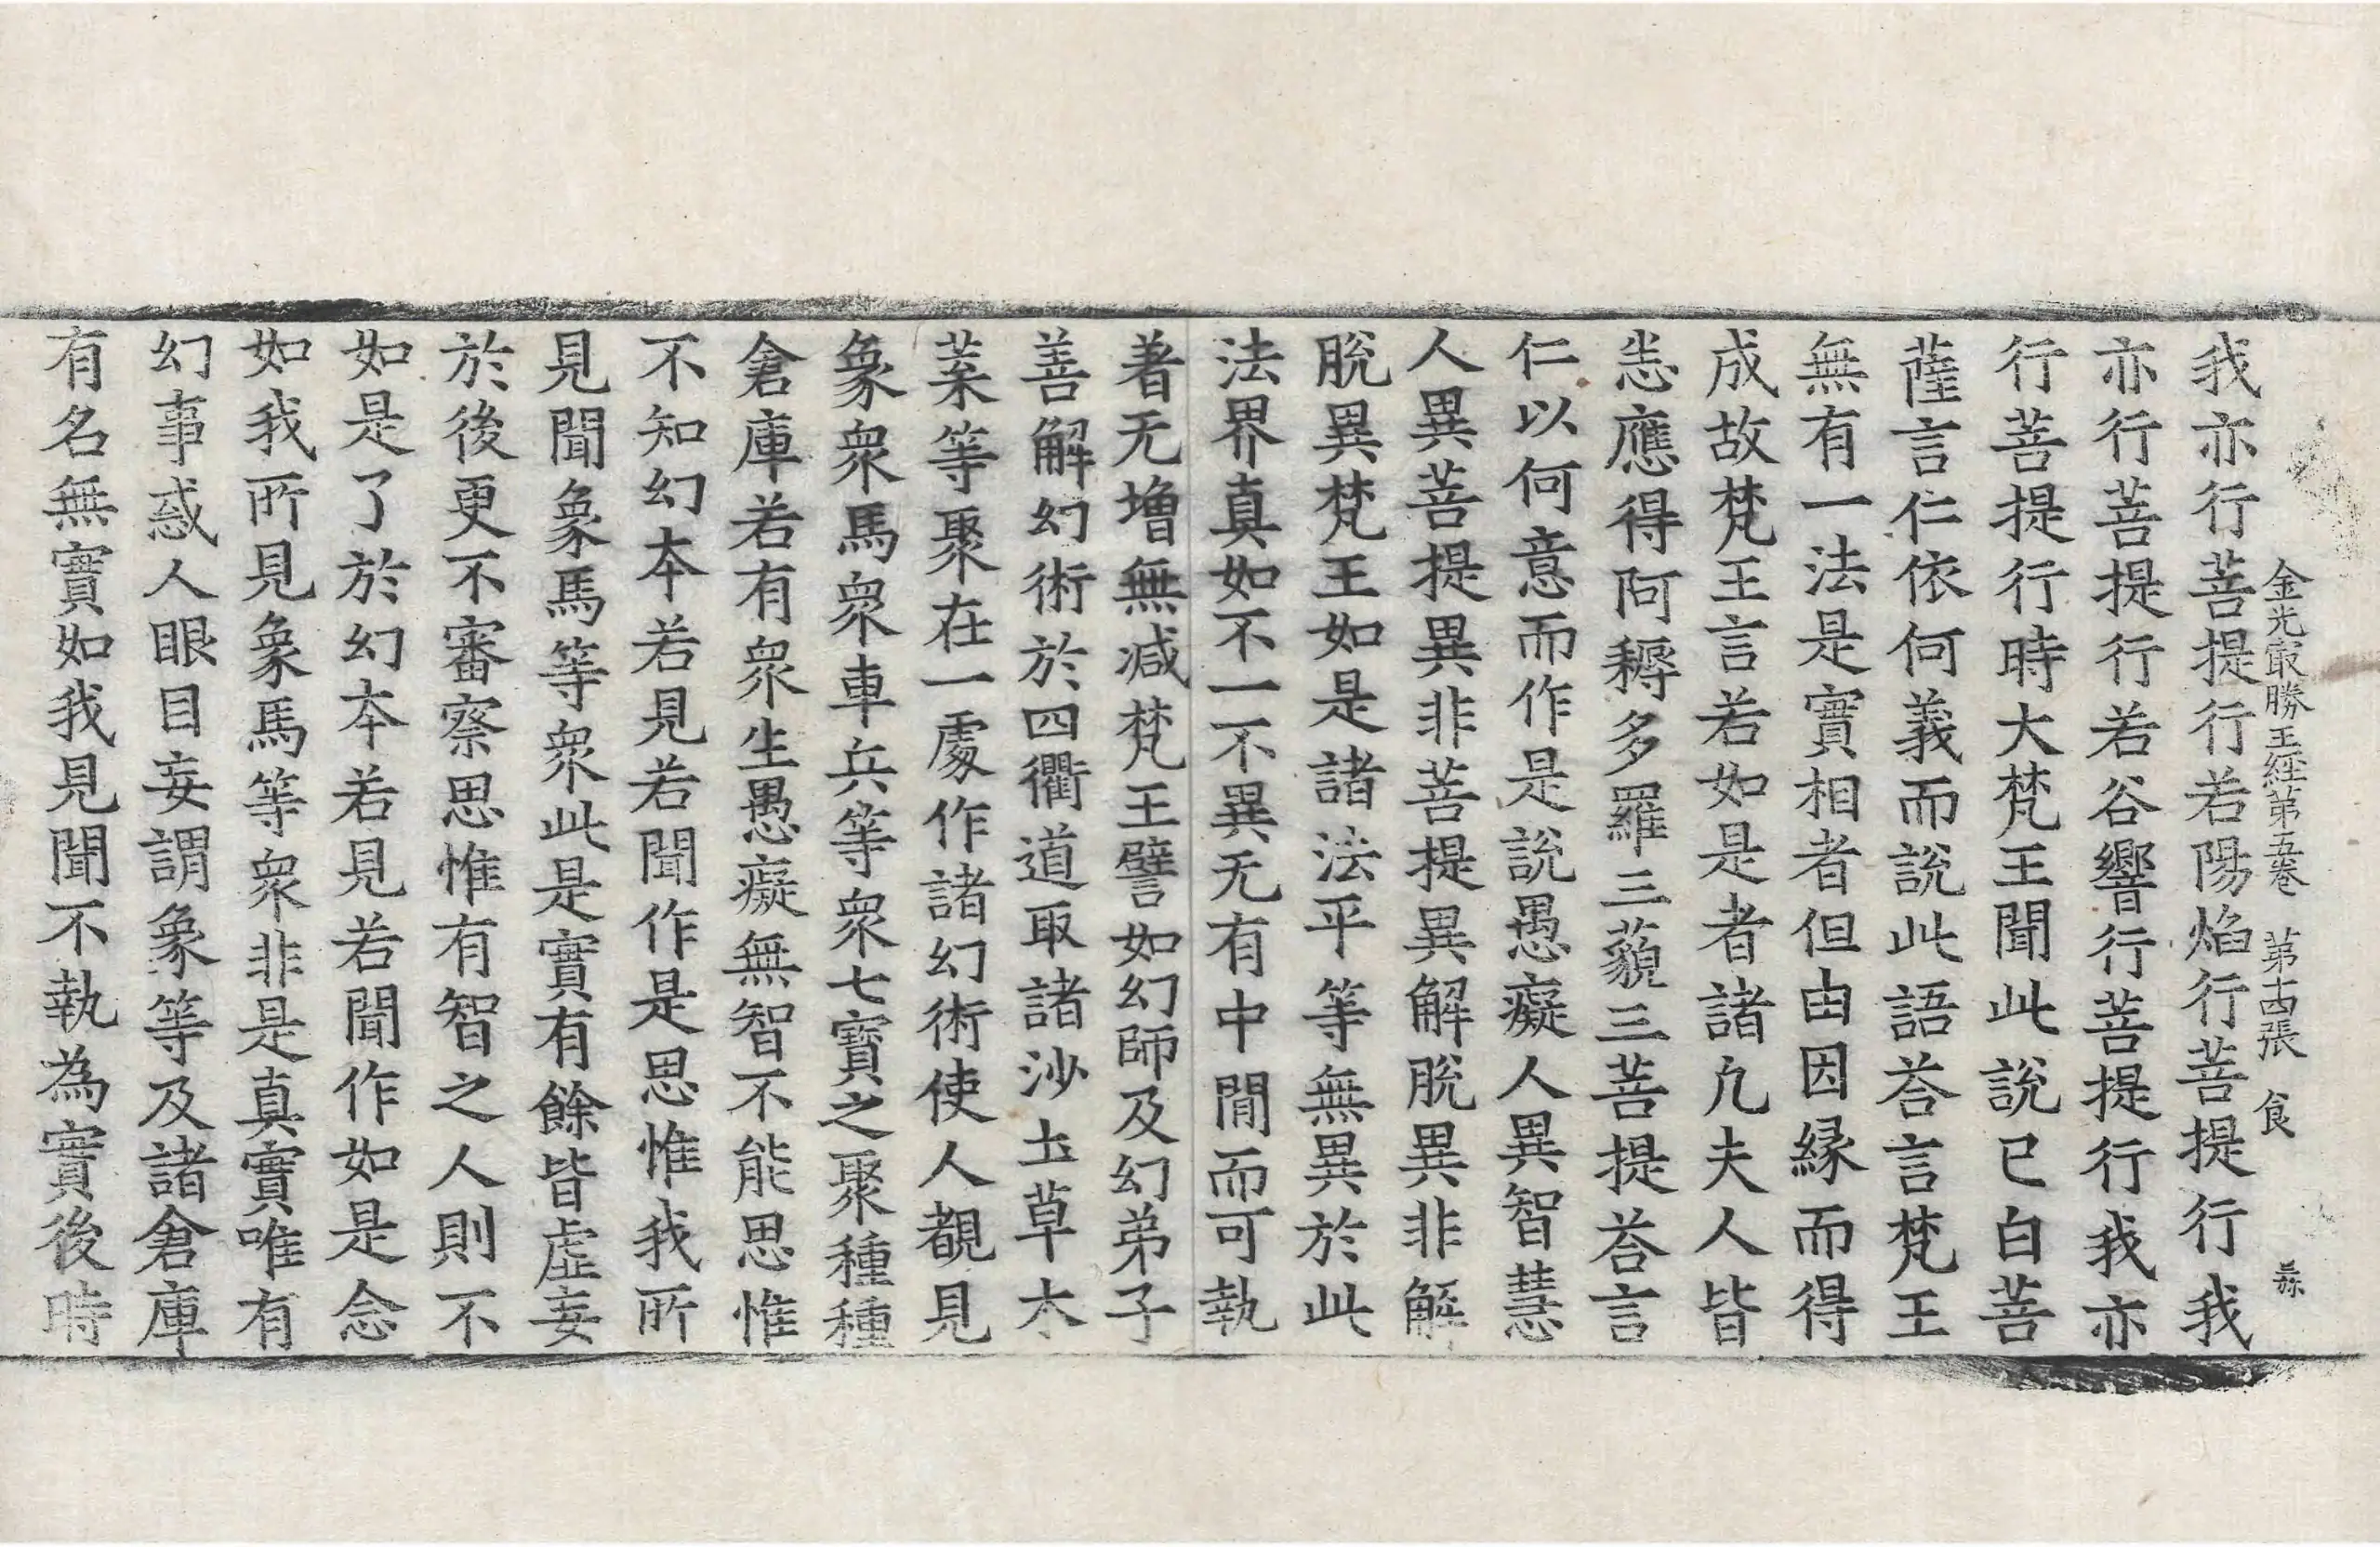 金光㝡勝王經第五卷　第十四張　食
我亦行菩提行若陽焰行菩提行我
亦行菩提行若谷響行菩提行我亦
行菩提行時大梵王聞此說已白菩
薩言仁依何義而說此語荅言梵王
無有一法是實相者但由因縁而得
成故梵王言若如是者諸凢夫人皆
悉應得阿耨多羅三藐三菩提荅言
仁以何意而作是說愚癡人異智慧
人異菩提異非菩提異解脫異非解
脫異梵王如是諸法平等無異於此
法界真如不一不異无有中間而可執
著无增無减梵王譬如幻師及幻弟子
善解幻術於四衢道取諸沙土草木
葉等聚在一處作諸幻術使人覩見
象衆馬衆車兵等衆七寶之聚種種
倉庫若有衆生愚癡無智不能思惟
不知幻本若見若聞作是思惟我所
見聞象馬等衆此是實有餘皆虛妄
於後更不審察思惟有智之人則不
如是了於幻本若見若聞作如是念
如我所見象馬等衆非是真實唯有
幻事惑人眼目妄謂象等及諸倉庫
有名無實如我見聞不執為實後時